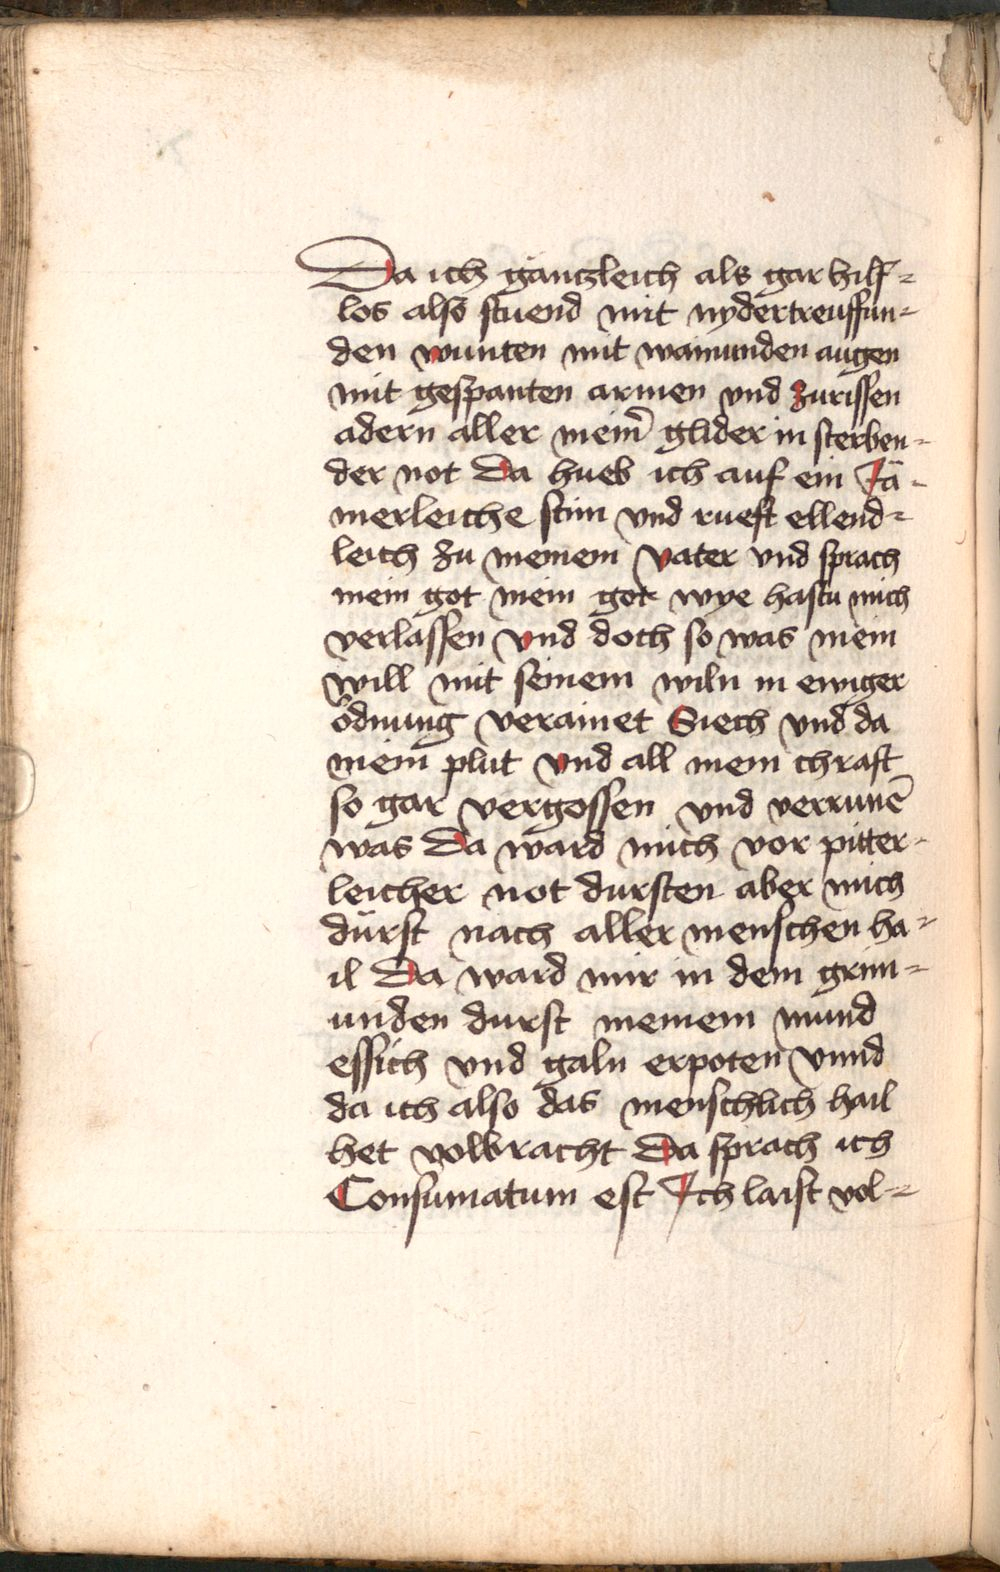 Da ich gäntzleich als gar hilf-
los also stuend mit nydertreuffun-
den wunten mit wainunden augen
mit gespanten armen vnd zurissen
adern aller meiner̄ glider in sterben-
der not Da hueb ich auf ein Jä-
merleiche stim vnd rueft ellend-
leich zu meinem vater vnd sprach
mein got mein got wye hastu mich
verlassen vnd doch so was mein
will mit seinem wiln in ewiger
ödnung verainet Siech vnd da
mein plut vnd all mein chraft
so gar vergossen vnd verrunē
was Da ward mich vor pitter-
leicher not dursten aber mich
dürst nach aller menschen ha-
il Da ward mir in dem grim-
unden durst meinem mund
essich vnd galn erpoten vnnd
da ich also das menschlich hail
het volbracht Da sprach ich
Consumatum est Ich laist vol-